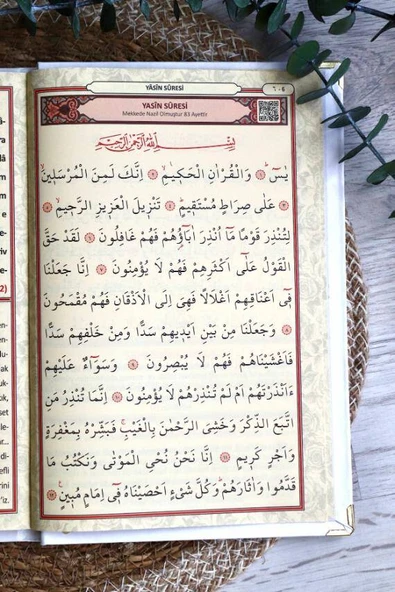 YÂSÎN SÛRESİ
٦٠٤
YASİN SÛRESİ
Mekkede Nazil Olmuştur 83 Ayettir
بِسْمِ اللّٰهِ الرَّحْمٰنِ الرَّحِيمِ
يٰسٓ ۚ ۝١ وَالْقُرْاٰنِ الْحَكِيمِۙ ۝٢ اِنَّكَ لَمِنَ الْمُرْسَلِينَۙ
۝٣ عَلٰى صِرَاطٍ مُسْتَقِيمٍۜ ۝٤ تَنْزِيلَ الْعَزِيزِ الرَّحِيمِۙ ۝٥
لِتُنْذِرَ قَوْمًا مَٓا اُنْذِرَ اٰبَٓاؤُ۬هُمْ فَهُمْ غَافِلُونَ ۝٦ لَقَدْ حَقَّ
الْقَوْلُ عَلٰٓى اَكْثَرِهِمْ فَهُمْ لَا يُؤْمِنُونَ ۝٧ اِنَّا جَعَلْنَا
فِٓى اَعْنَاقِهِمْ اَغْلَالًا فَهِىَ اِلَى الْاَذْقَانِ فَهُمْ مُقْمَحُونَ
۝٨ وَجَعَلْنَا مِنْ بَيْنِ اَيْدِيهِمْ سَدًّا وَمِنْ خَلْفِهِمْ سَدًّا
فَاَغْشَيْنَاهُمْ فَهُمْ لَا يُبْصِرُونَ ۝٩ وَسَوَٓاءٌ عَلَيْهِمْ
ءَاَنْذَرْتَهُمْ اَمْ لَمْ تُنْذِرْهُمْ لَا يُؤْمِنُونَ ۝١٠ اِنَّمَا تُنْذِرُ مَنِ
اتَّبَعَ الذِّكْرَ وَخَشِىَ الرَّحْمٰنَ بِالْغَيْبِۚ فَبَشِّرْهُ بِمَغْفِرَةٍ
وَاَجْرٍ كَرِيمٍ ۝١١ اِنَّا نَحْنُ نُحْيِ الْمَوْتٰى وَنَكْتُبُ مَا
قَدَّمُوا وَاٰثَارَهُمْۜ وَكُلَّ شَىْءٍ اَحْصَيْنَاهُ فِٓى اِمَامٍ مُبِينٍ۟ ۝١٢